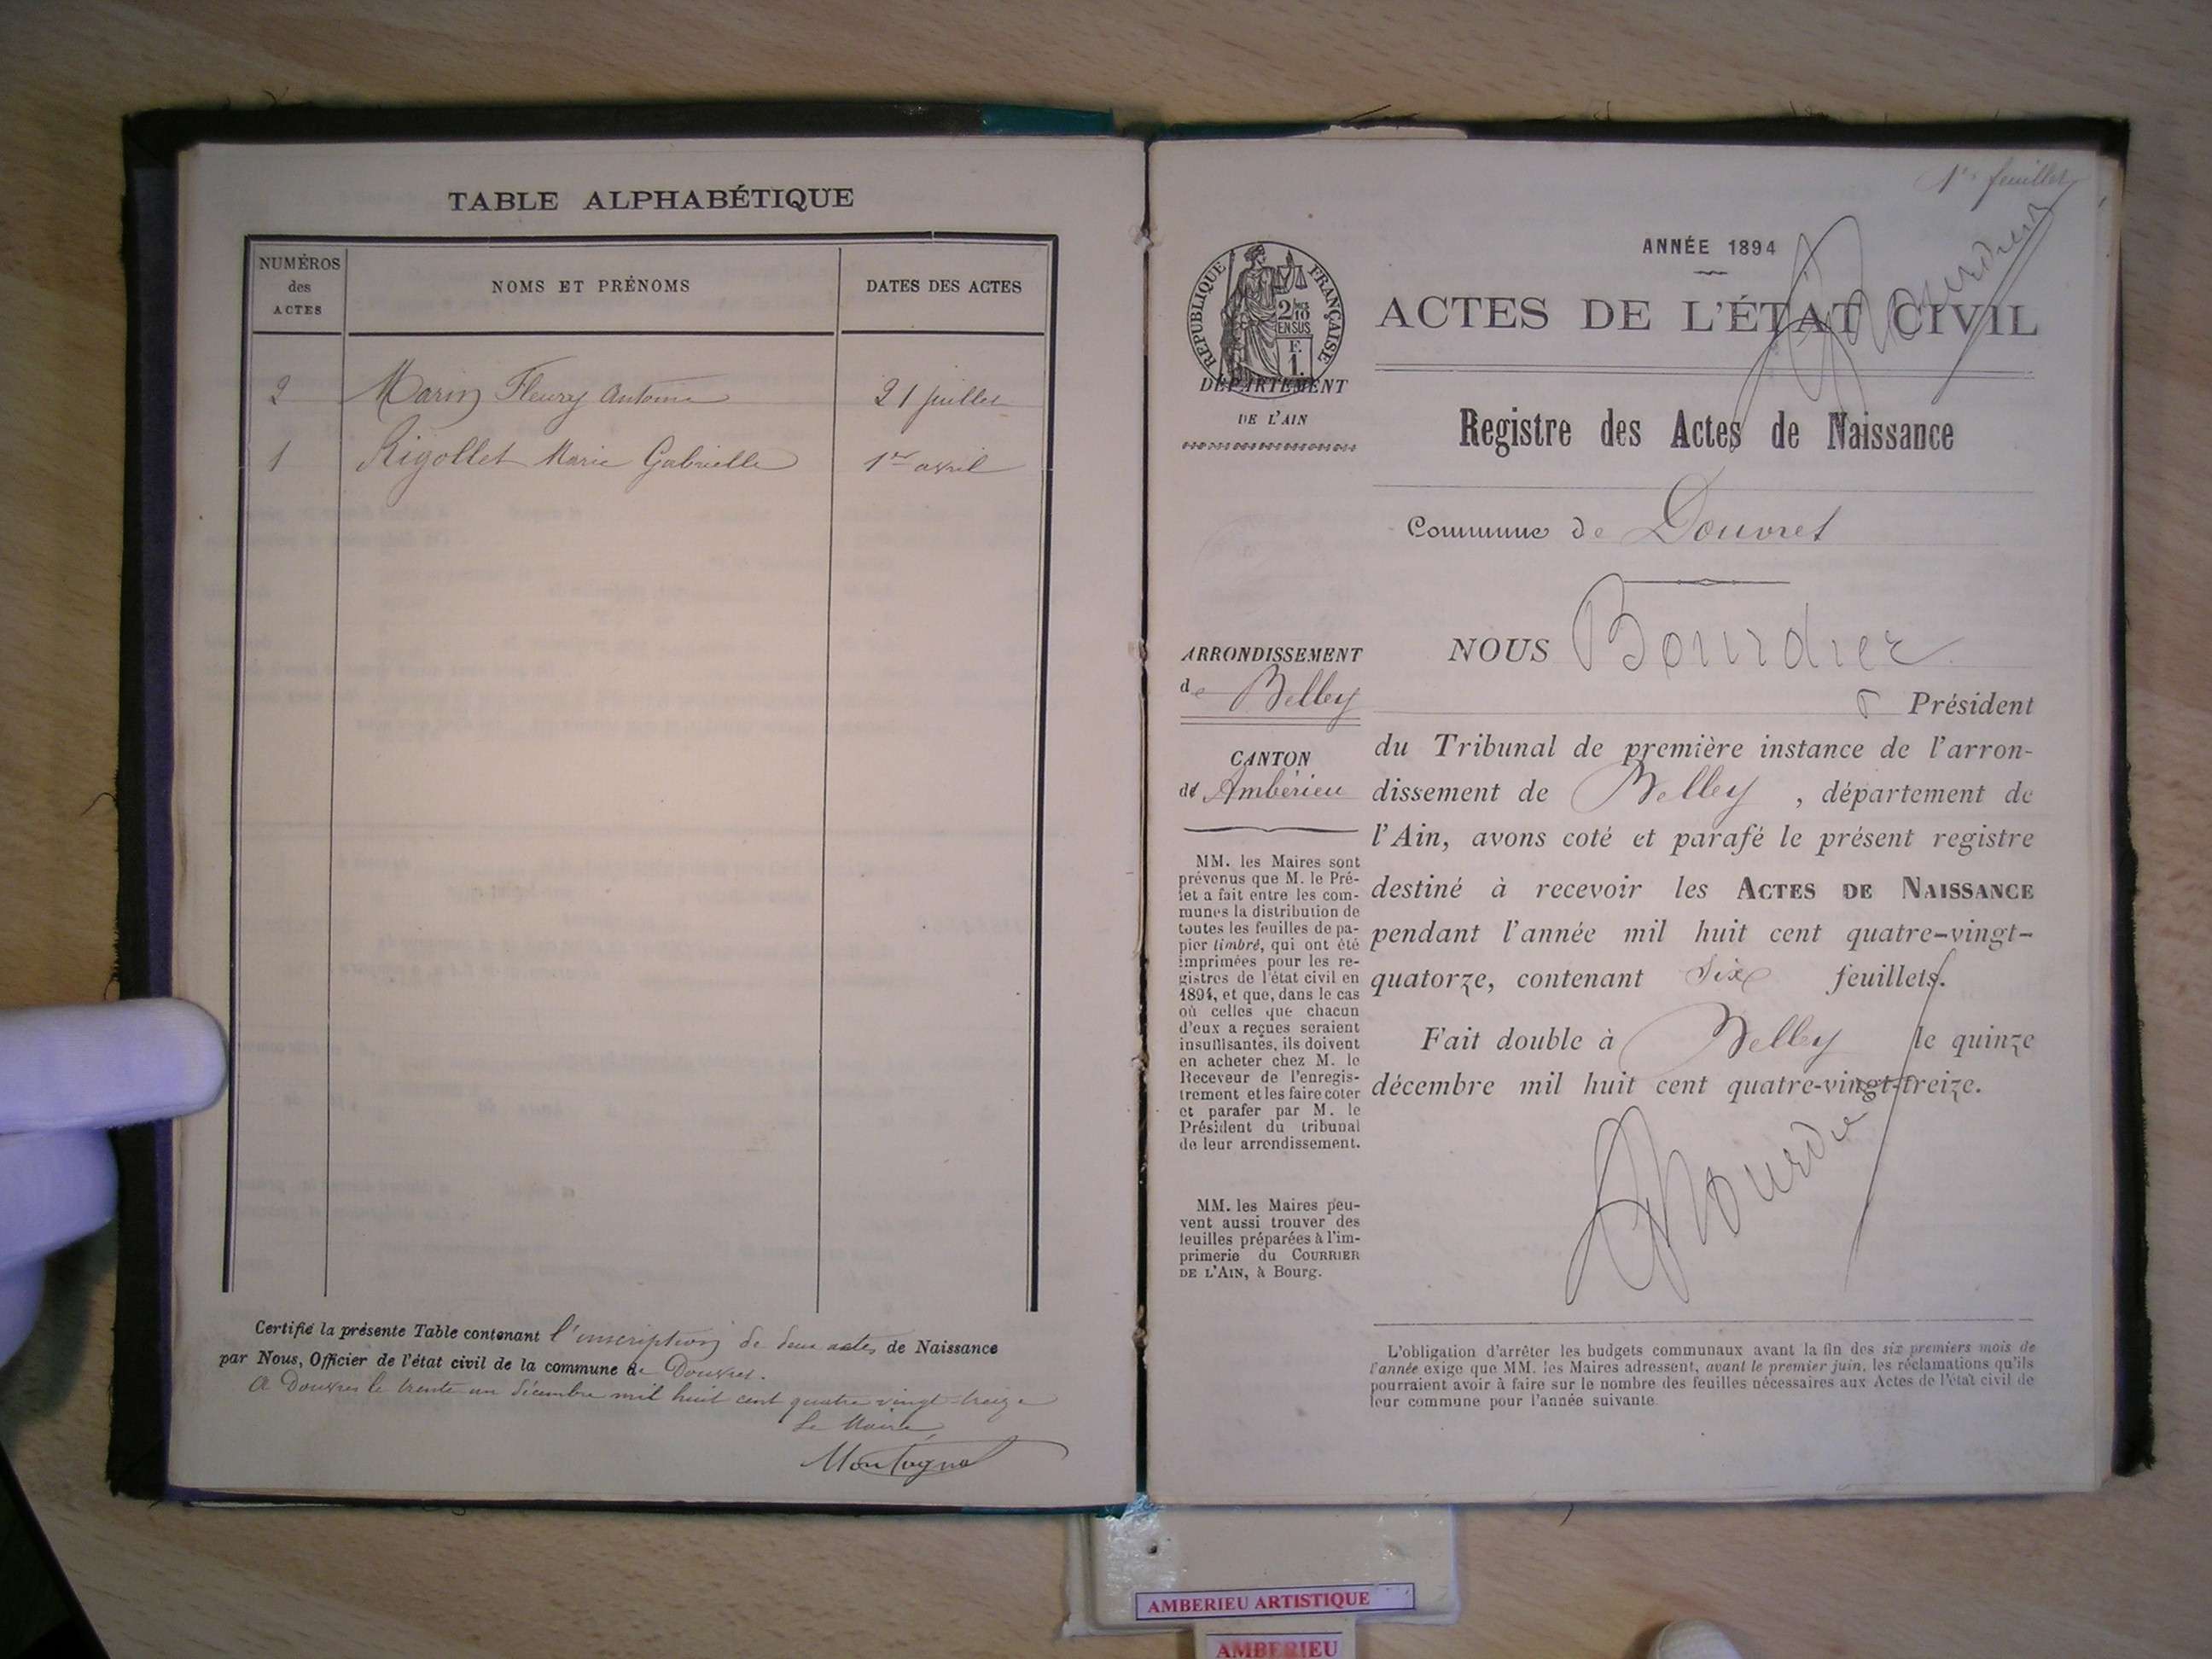 TABLE ALPHABÉTIQUE
NUMÉROS des ACTES
NOMS ET PRÉNOMS
DATES DES ACTES
2 Marin Fleury Antoine 21 juillet
1 Rigollet Marie Gabrielle 1er avril
Certifié la présente Table contenant l'inscription de deux actes de Naissance
par Nous, Officier de l'état civil de la commune de Douvres.
A Douvres le trente un décembre mil huit cent quatre vingt treize
Le Maire,
Montagnat
1er feuillet
Bourdier
ANNÉE 1894
RÉPUBLIQUE FRANÇAISE
2/10 EN SUS
F. 1.
ACTES DE L'ÉTAT CIVIL
DÉPARTEMENT
DE L'AIN
Registre des Actes de Naissance
Commune de Douvres
ARRONDISSEMENT
de Belley
CANTON
de Ambérieu
MM. les Maires sont
prévenus que M. le Pré-
fet a fait entre les com-
munes la distribution de
toutes les feuilles de pa-
pier timbré, qui ont été
imprimées pour les re-
gistres de l'état civil en
1894, et que, dans le cas
où celles que chacun
d'eux a reçues seraient
insuffisantes, ils doivent
en acheter chez M. le
Receveur de l'enregis-
trement et les faire coter
et parafer par M. le
Président du tribunal
de leur arrondissement.
MM. les Maires peu-
vent aussi trouver des
feuilles préparées à l'im-
primerie du COURRIER
DE L'AIN, à Bourg.
NOUS Bourdier
Président
du Tribunal de première instance de l'arron-
dissement de Belley, département de
l'Ain, avons coté et parafé le présent registre
destiné à recevoir les ACTES DE NAISSANCE
pendant l'année mil huit cent quatre-vingt-
quatorze, contenant six feuillets.
Fait double à Belley le quinze
décembre mil huit cent quatre-vingt-treize.
Bourdier
L'obligation d'arrêter les budgets communaux avant la fin des six premiers mois de
l'année exige que MM. les Maires adressent, avant le premier juin, les réclamations qu'ils
pourraient avoir à faire sur le nombre des feuilles nécessaires aux Actes de l'état civil de
leur commune pour l'année suivante.
AMBERIEU ARTISTIQUE
AMBERIEU